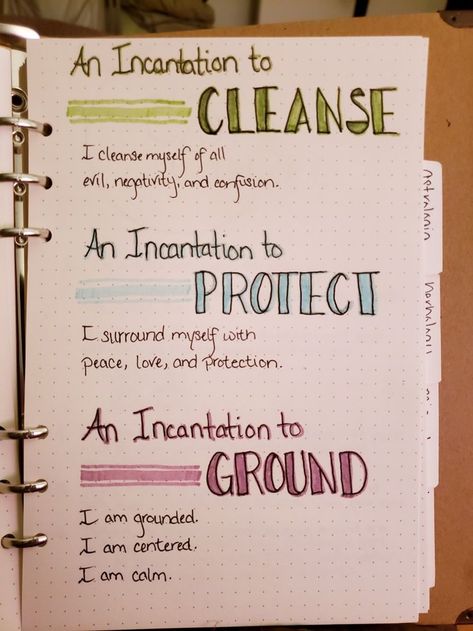 An Incantation to
CLEANSE
I cleanse myself of all
evil, negativity, and confusion.
An Incantation to
PROTECT
I surround myself with
peace, love, and protection.
An Incantation to
GROUND
I am grounded.
I am centered.
I am calm.